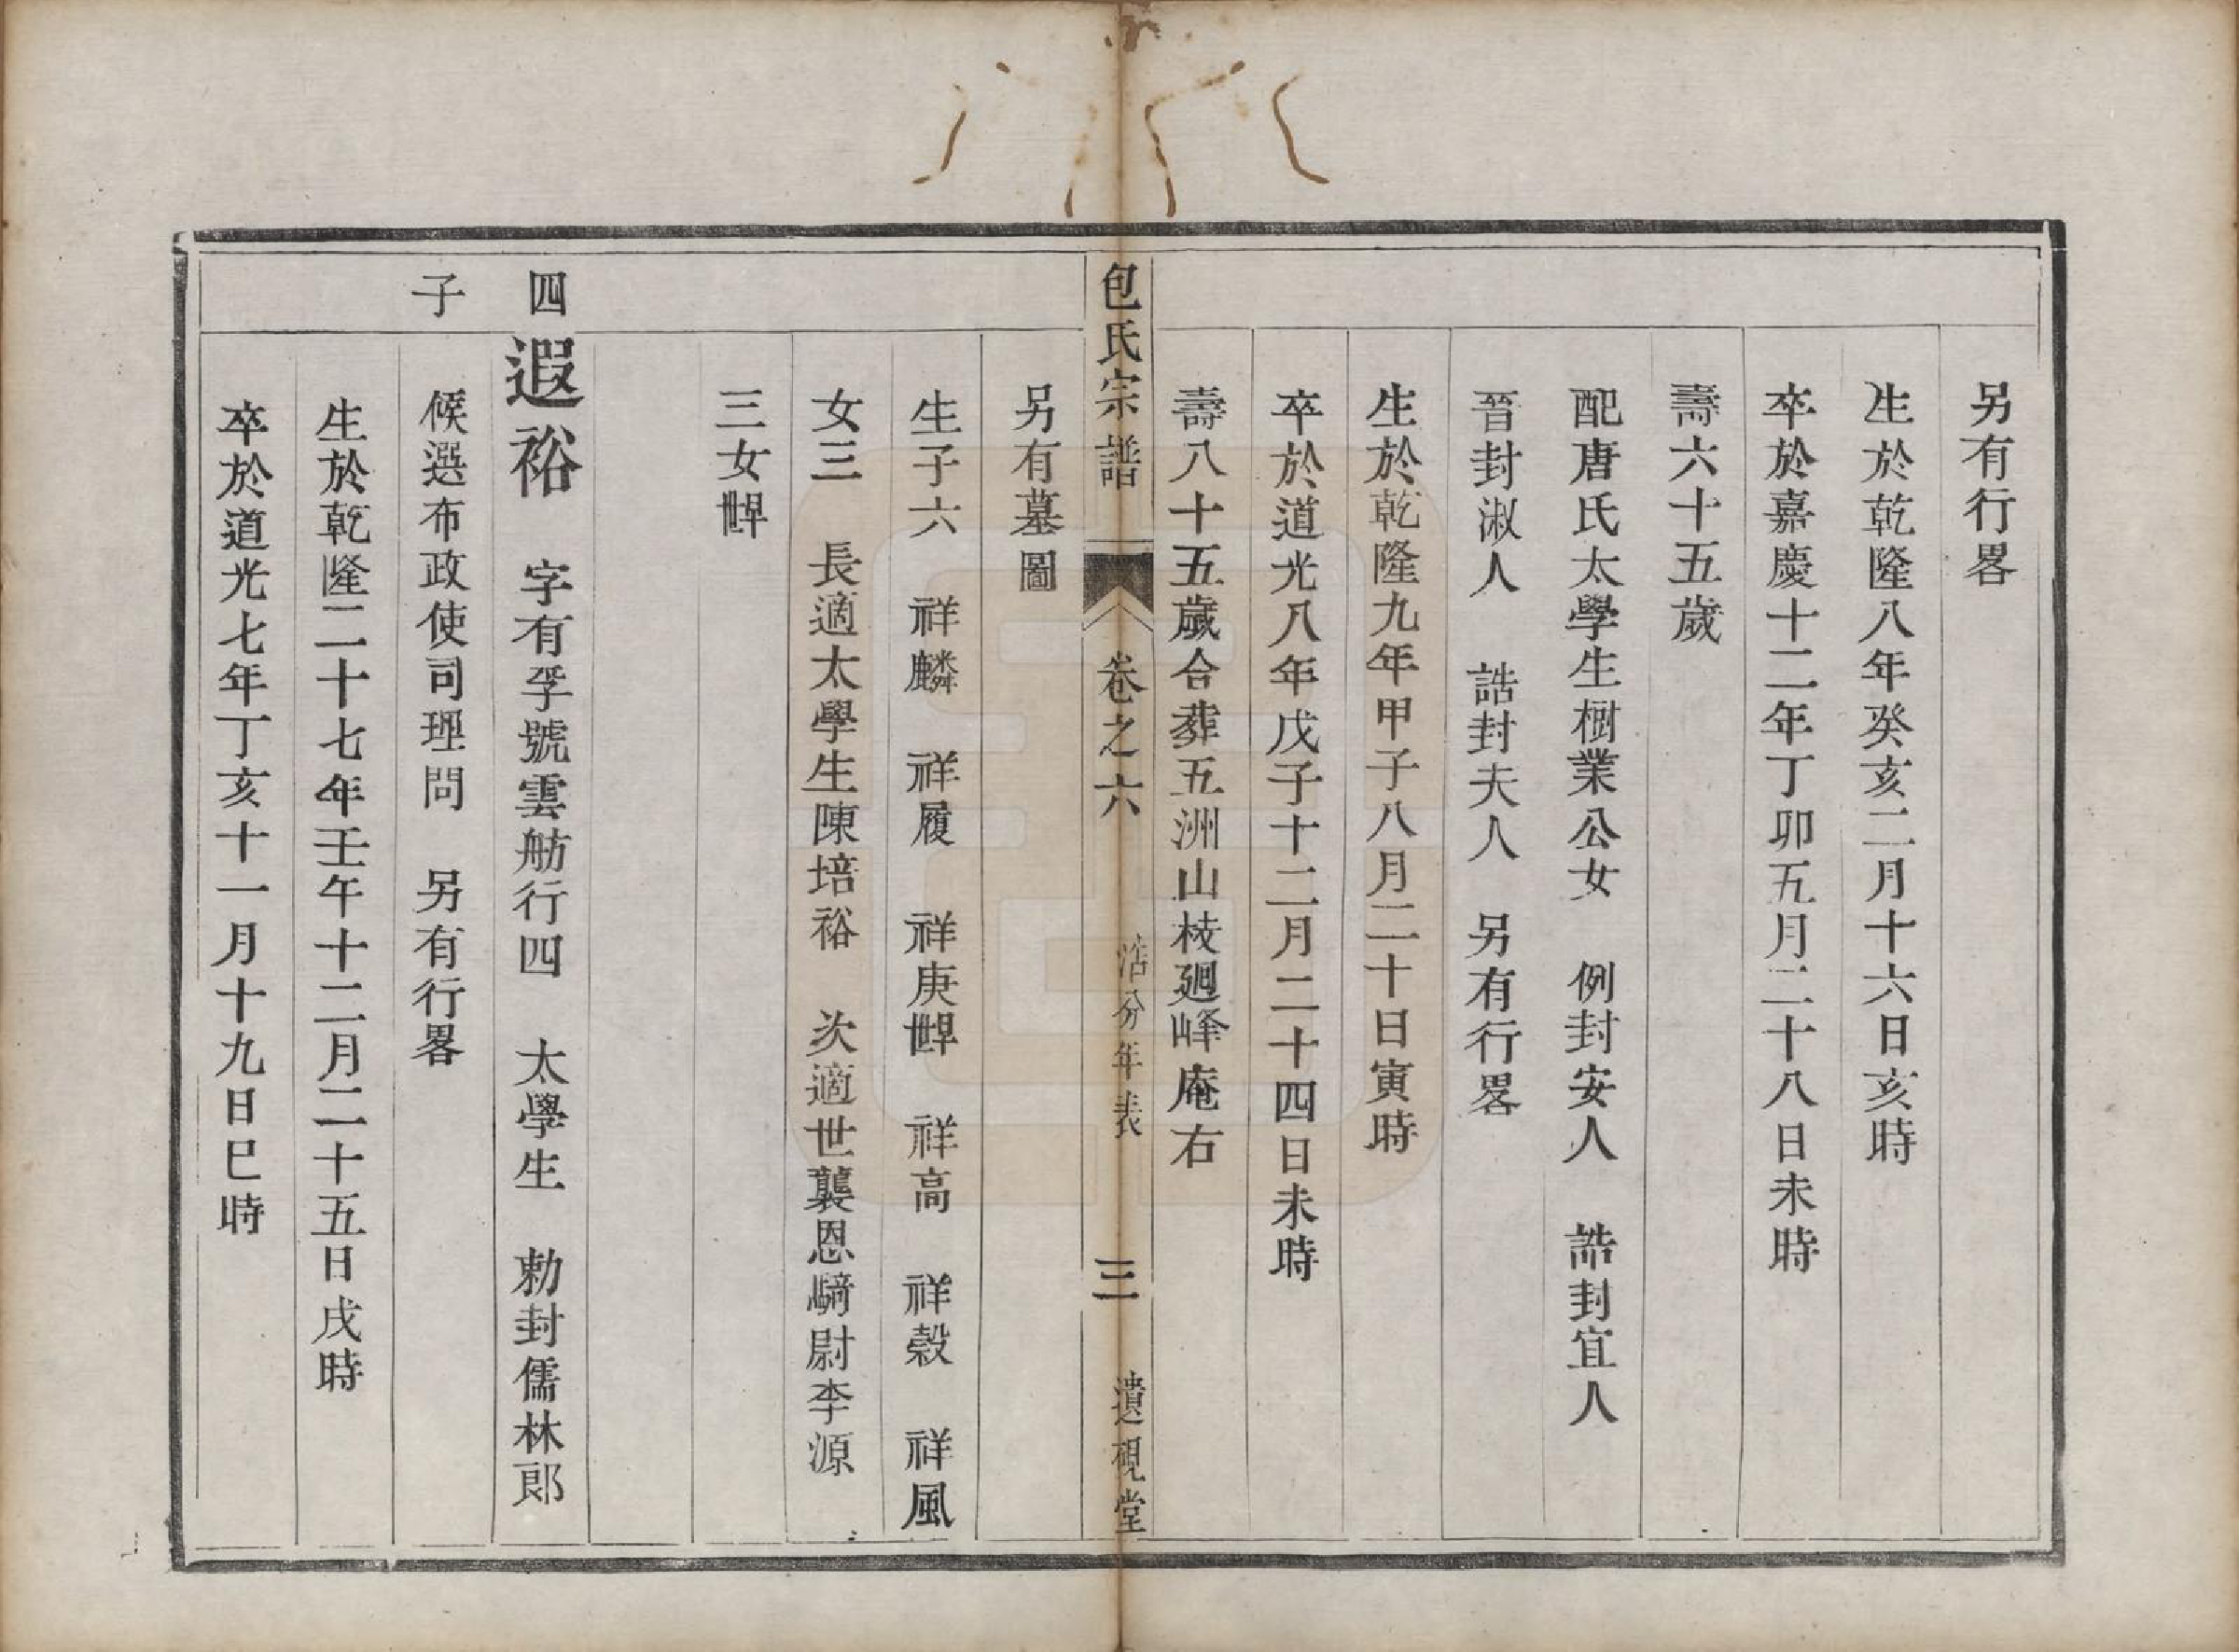 另有行畧
生於乾隆八年癸亥二月十六日亥時
卒於嘉慶十二年丁卯五月二十八日未時
壽六十五歲
配唐氏太學生樹業公女　例封安人　誥封宜人
晉封淑人　誥封夫人　另有行畧
生於乾隆九年甲子八月二十日寅時
卒於道光八年戊子十二月二十四日未時
壽八十五歲合葬五洲山枝廻峰庵右
包氏宗譜　卷之六　浩分年表　三　遺硯堂
另有墓圖
生子六　祥麟　祥履　祥庚　祥高　祥穀　祥風
女三　長適太學生陳培裕　次適世襲恩騎尉李源
三女
四子
遐裕　字有孚號雲舫行四　太學生　勅封儒林郎
候選布政使司理問　另有行畧
生於乾隆二十七年壬午十二月二十五日戌時
卒於道光七年丁亥十一月十九日巳時